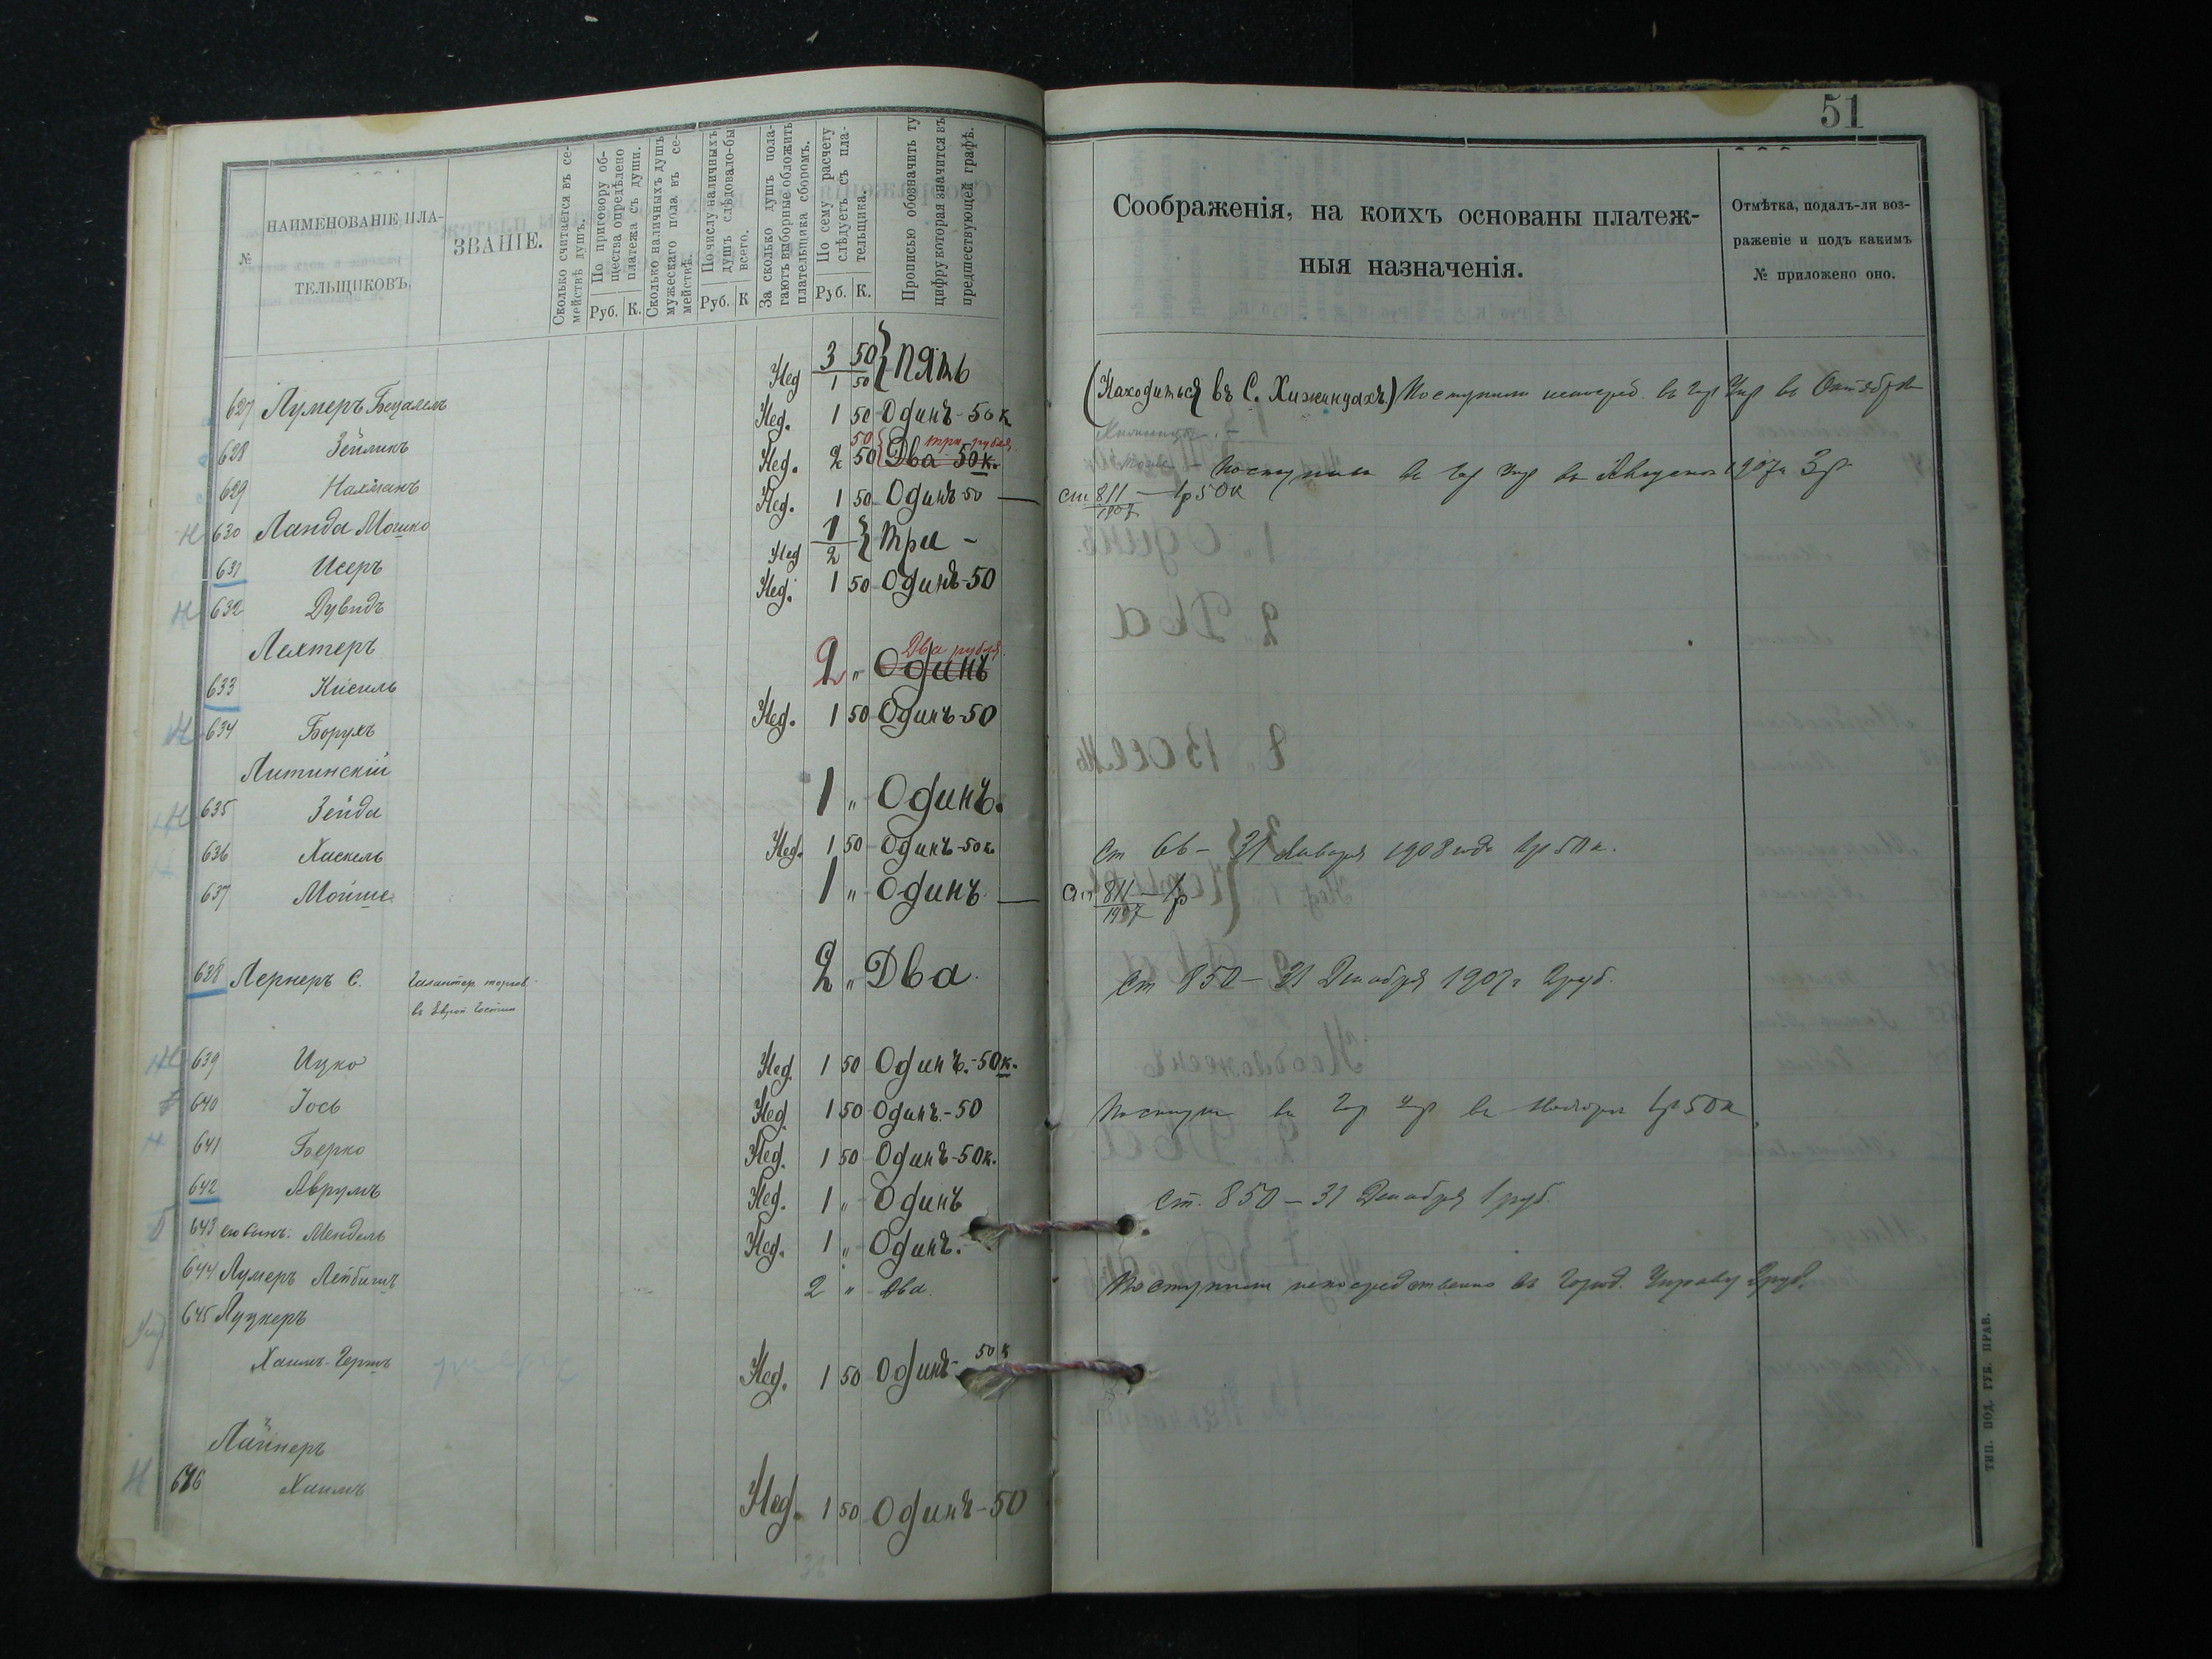 51
№
НАИМЕНОВАНІЕ ПЛА-
ТЕЛЬЩИКОВЪ.
ЗВАНІЕ.
Сколько считается въ се-
мействѣ душъ.
По приговору об-
щества опредѣлено
платежа съ души.
Руб. К.
Сколько наличныхъ душъ
мужескаго пола въ се-
мействѣ.
По числу наличныхъ
душъ слѣдовало-бы
всего.
Руб. К
За сколько душъ пола-
гаютъ выборные обложить
плательщика сборомъ.
По сему расчету
слѣдуетъ съ пла-
тельщика.
Руб. К.
Прописью обозначить ту
цифру которая значится въ
предшествующей графѣ.
Соображенія, на коихъ основаны платеж-
ныя назначенія.
Отмѣтка, подалъ-ли воз-
раженіе и подъ какимъ
№ приложено оно.
3 50
Нед 1 50 } пять
627 Лумеръ Бецалель Нед. 1 50 Одинъ-50 к (Находиться въ С. Хижинцахъ) Поступило въ Октябрѣ
628 Зейликъ Нед. 2 50 50 { Два 50к. три рубля
Поступило въ Августѣ 1907 г 3 р
629 Нахманъ Нед. 1 50 Одинъ-50 — ст 811/1907 — 1р 50к
Н 630 Ланда Мошко 1
Нед 2 } три -
631 Исеръ Нед. 1 50 Одинъ-50
Н 632 Дувидъ
Лехтеръ
633 Кисиль 2 " Одинъ Два рубля.
Н 634 Борухъ Нед. 1 50 Одинъ-50
Литинскій
Н 635 Зейда 1 " Одинъ.
636 Хаскель Нед. 1 50 Одинъ-50к. ст 66 — 31 Января 1908 года 1р 50к.
637 Мойше 1 " Одинъ — ст 811/1907 — 1р
638 Лернеръ С. Галантер. торгов. 2 " Два. ст 850 — 31 Декабря 1907 г 2 руб.
Н 639 Ицко Нед. 1 50 Одинъ.-50к.
640 Іось Нед. 1 50 Одинъ.-50 Поступ въ въ Ноября 1р 50к
Н 641 Берко Нед. 1 50 Одинъ-50к.
642 Аврумъ Нед. 1 " Одинъ ст. 850 — 31 Декабря 1 руб.
643 его сынъ. Мендель Нед. 1 " Одинъ.
644 Лумеръ Лейбишъ 2 " Два. Поступило непосредственно въ Город. Управу 2 руб.
645 Луцкеръ
Хаимъ-Гершъ Нед. 1 50 Одинъ- 50 к
Лайнеръ
Н 646 Хаимъ Нед. 1 50 Одинъ-50
ТИП. ПОД. ГУБ. ПРАВ.